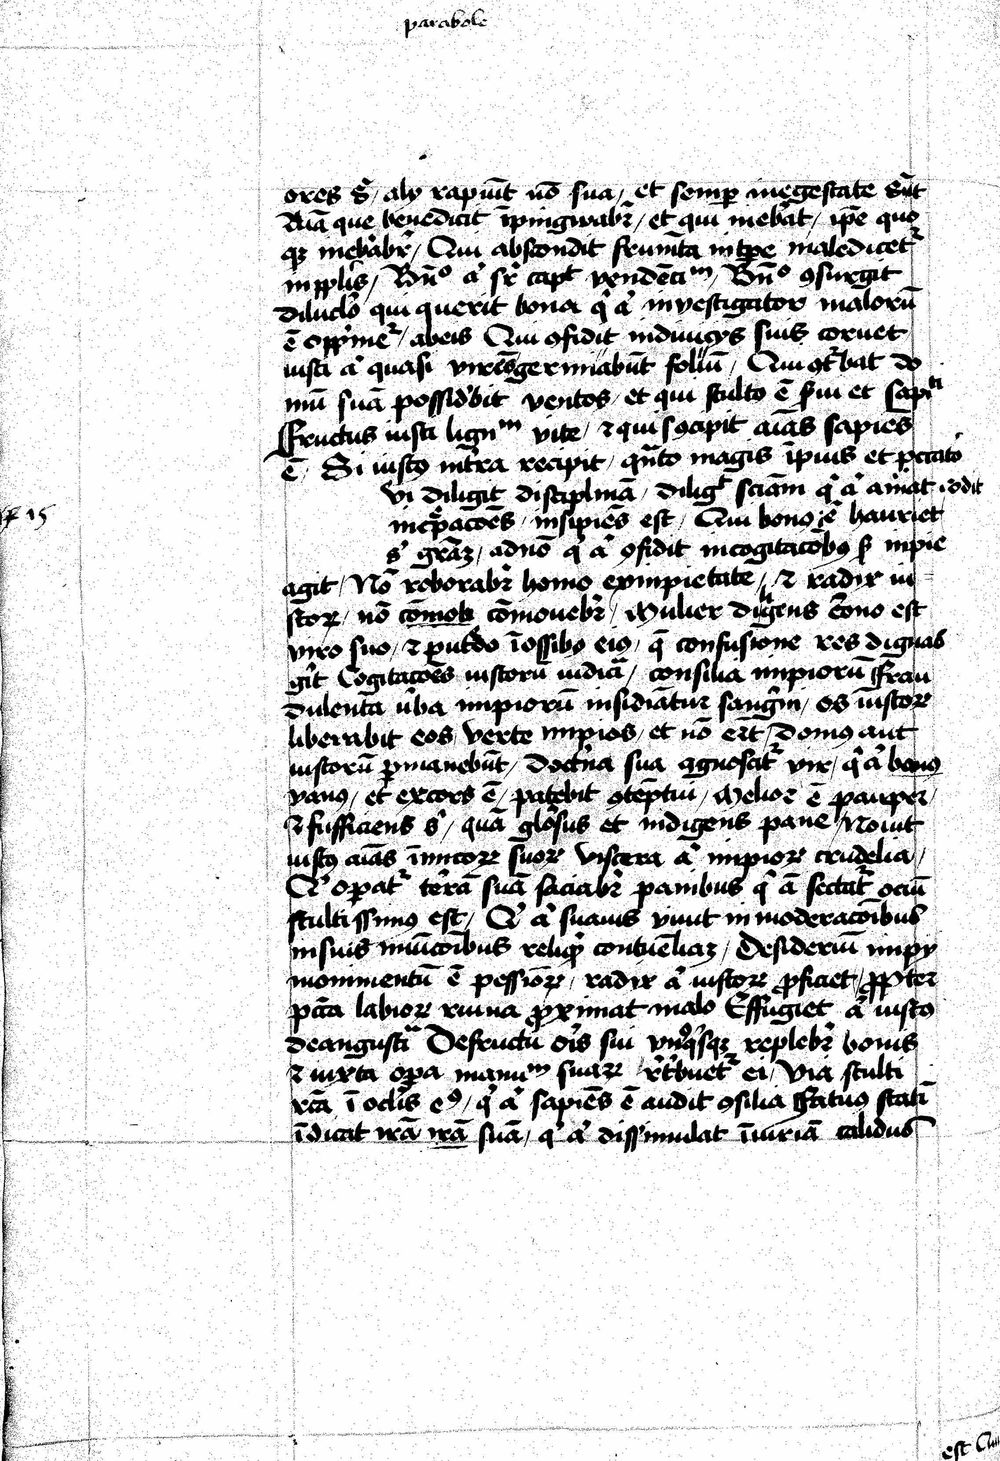 parabole
ores sūt / alij rapiūt nō sua / et semp̄ inegestate sūt
Aīa que benedicit īpingwabr̄ / et qui inebāt / ip̄e quo
qz inebabr̄ / Qui abscondit frumēta in tpe maledicet᷑
in pplis / Bn̄o a᷑ sr̄ capt vendēciū / Bn̄o ꝯsurgit
diluclo qui querit bona q᷑ a᷑ investigator malorū
ē opp̄imet᷑ / abeis Qui ꝯfidit indivicijs suis coruet
iusti a᷑ quasi viresgerminabūt foliū / Qui ꝯt᷑bat do
mū suā possidebit ventos / et qui stulto ē s᷑uiet sapiēti
Fructus iusti lignū vite / ⁊ qui suscipit aīas sapiēs
ē / Si iustꝯ int᷑ra recipit / q̄nto magis īpius et pctato
15
vi diligit disciplinā / diligt sciam q᷑ a᷑ / odit
increpacōēs / insipiēs est / Qui bonꝯ ē hauriet
s᷑ graz / adnō q᷑ a᷑ ꝯfidit incogitacōbꝯ s᷑ inpie
agit / Nō roborabr̄ homo eximpietate / ⁊ radix iu
stoꝝ / nō cōmob cōmovebr̄ / Mulier diligens corona est
viro suo / ⁊ putrdo ī ossibꝯ eiꝯ / q̄ confusione res dignas
git Cogitacōēs iustorū iudicia / consilia impiorū frau
dulenta v᷑ba impiorū insidiātur sangini / os iustoꝝ
liberabit eos / verte impios / et nō erūt / domꝯ aut
iustorū p̄manebūt / doctna sua agnoscit᷑ vir / q᷑ a᷑ bonꝯ
vanꝯ / et excors ē / patebit ꝯtēptui / Melior ē pauper /
⁊ sufficiens s᷑ / quā gl̄osus et indigens pane / Nouit
iustꝯ aīas iumtoꝝ suoꝝ viscera a᷑ impioꝝ crudelia /
Q᷑ opat᷑ terrā suā saciabr̄ panibus q᷑ a᷑ sectat᷑ ociū
stultissimꝯ est / Q᷑ a᷑ suavis vivit in moderacōibus
in suis municōibus relinq̄t contūēliaz / Desideriū impij
monimentū ē pessioꝝ / radix a᷑ iustoꝝ ꝓficiet / ꝓpter
pcca labioꝝ ruina ꝓximat malo Effugiet a᷑ iustꝯ
deangustia Defructu oris sui vnꝯq᷑sqz replebr̄ bonis
⁊ iuxta opa manuū suaꝝ r᷑t᷑buet᷑ ei / Via stulti
rcā ī oclis eꝯ / q᷑ a᷑ sapiēs ē audit ꝯsilia Fatuꝯ statī
īdicat irā irā suā / q᷑ a᷑ dissimulat īiuriā calidus
est Qui